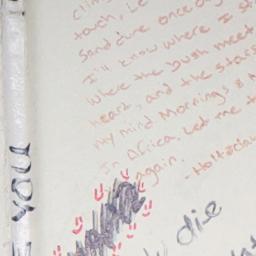 touch, Le
Sand dune once ag
I'll know where I st
Where the bush meet
heart, and the stars
my mind Mornings &
In Africa. Let me t
again.
- Holtzclaw
die
YOU